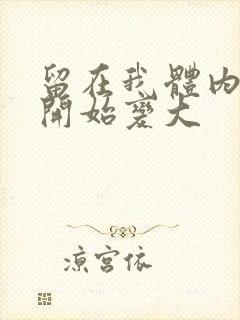 留在我體內
開始變大
涼宮依